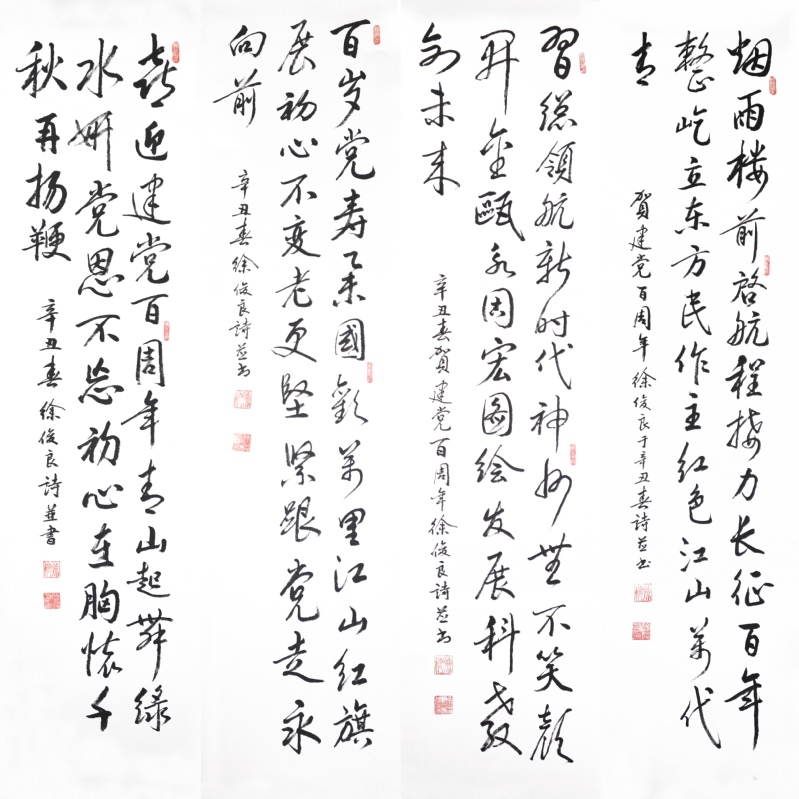 烟雨楼前啓航程接力长征百年
整屹立东方民作主红色江山萬代
青
贺建党百周年徐俊良于辛丑春詩並书
習總領航新时代神州無不笑颜
开金瓯永固宏圖绘发展科教
创未来
辛丑春贺建党百周年徐俊良詩並书
百岁党寿举國歡萬里江山红旗
展初心不变老更坚紧跟党走永
向前
辛丑春徐俊良詩並书
喜迎建党百周年青山起舞绿
水妍党恩不忘初心在胸懷千
秋再扬鞭
辛丑春徐俊良詩並書